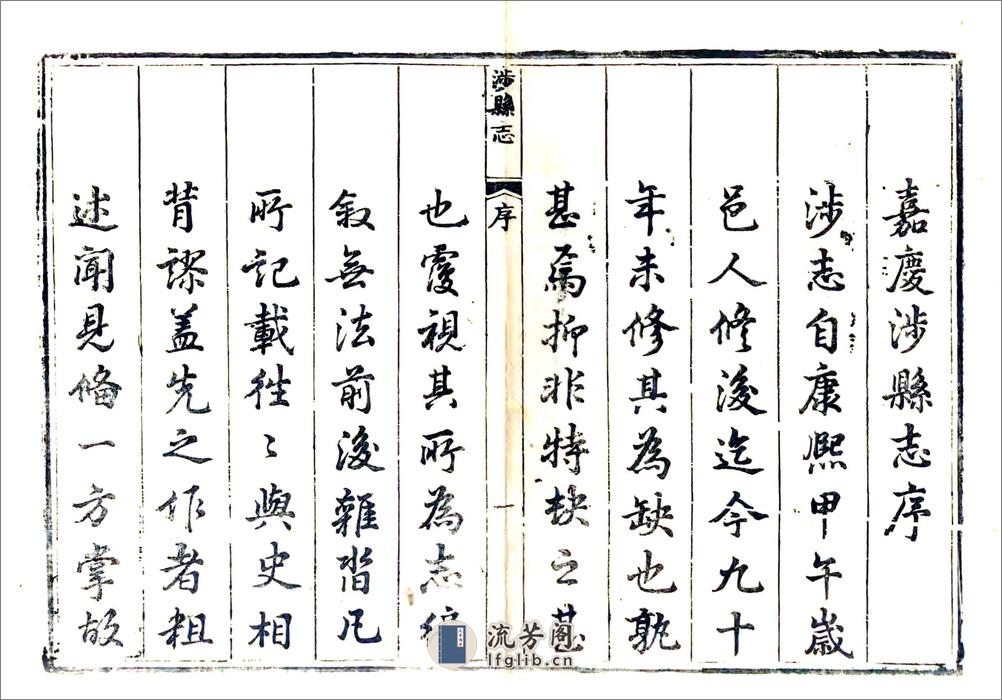 嘉慶涉縣志序
涉志自康熙甲午歲
邑人修後迄今九十
年未修其為缺也孰
甚焉抑非特缺之甚
涉縣志
序
一
也覆視其所為志編
叙無法前後雜沓凡
所記載往〻與史相
背謬盖先之作者粗
述聞見備一方掌故
流芳阁
lfglib.cn